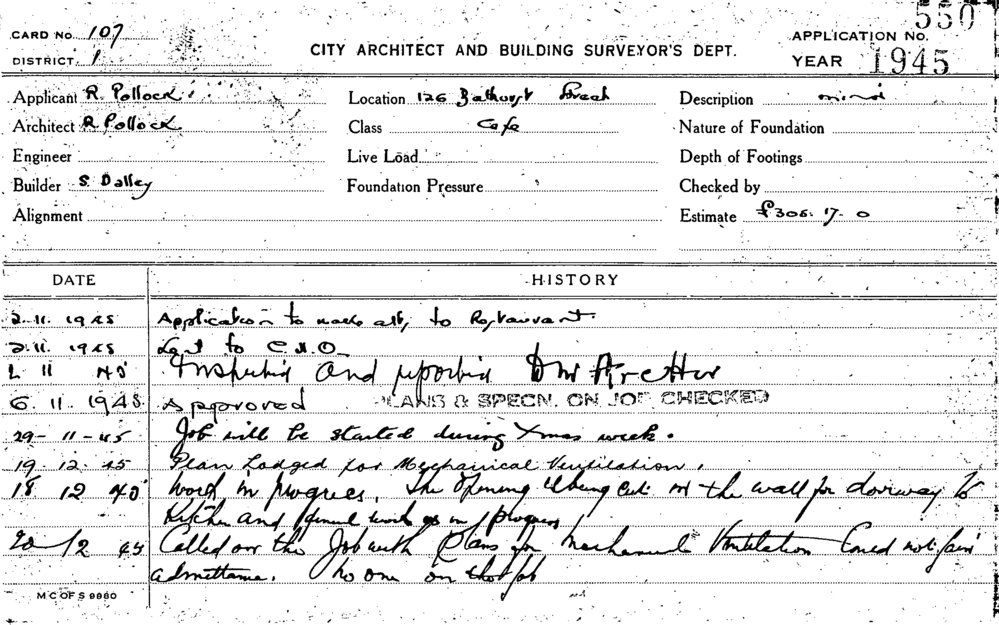 550
CARD No. 107
APPLICATION No.
CITY ARCHITECT AND BUILDING SURVEYOR'S DEPT.
DISTRICT. 1
YEAR 1945
Applicant R. Pollock Location 126 Bathurst Street Description minor
Architect R Pollock Class Cafe Nature of Foundation
Engineer Live Load Depth of Footings
Builder S. Dalley Foundation Pressure Checked by
Alignment Estimate £306. 17. 0
DATE HISTORY
2.11.1945 Application to make alts, to Restaurant
2.11.1945 to C.H.O.
11 45 Inspected and reported
6.11.1945 Approved PLANS & SPECN. ON JOB CHECKED
29-11-45 Job will be started during Xmas week.
19.12.45 Plan Lodged for Mechanical Ventilation.
18 12 45 Work in progress. The opening being cut in the wall for doorway to
Kitchen and general work in progress
20 12 45 Called on the Job with Plans for Mechanical Ventilation Could not gain
admittance. No one on the job
M C OF S 9980